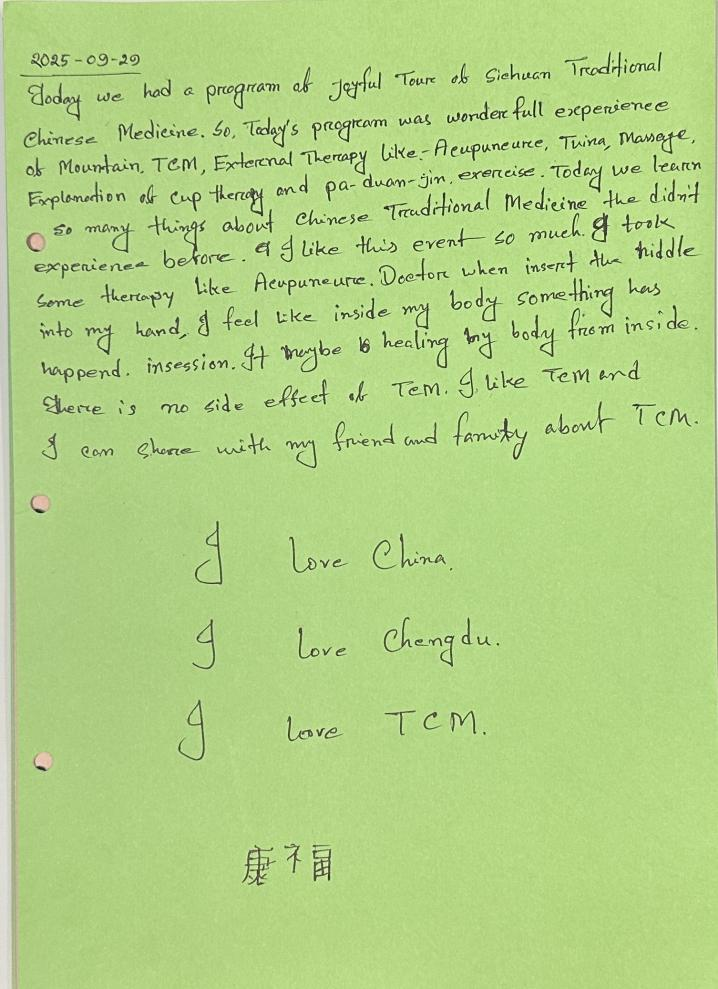 2025-09-29
Today we had a program of Joyful Tour of Sichuan Traditional
Chinese Medicine. So, Today's program was wonder full experience
of Mountain, TCM, External Therapy like:- Acupuneure, Tuina, Massage,
Explanation of cup therapy and pa-duan-jin, exercise. Today we learn
so many things about Chinese Traditional Medicine the didn't
experience before. I like this event so much. I took
some therapy like Acupuneure. Doctor when insert the niddle
into my hand, I feel like inside my body something has
happend. insession. It maybe healing my body from inside.
There is no side effect of TCM. I like TCM and
I can share with my friend and family about TCM.
I love China.
I love Chengdu.
I love TCM.
康福